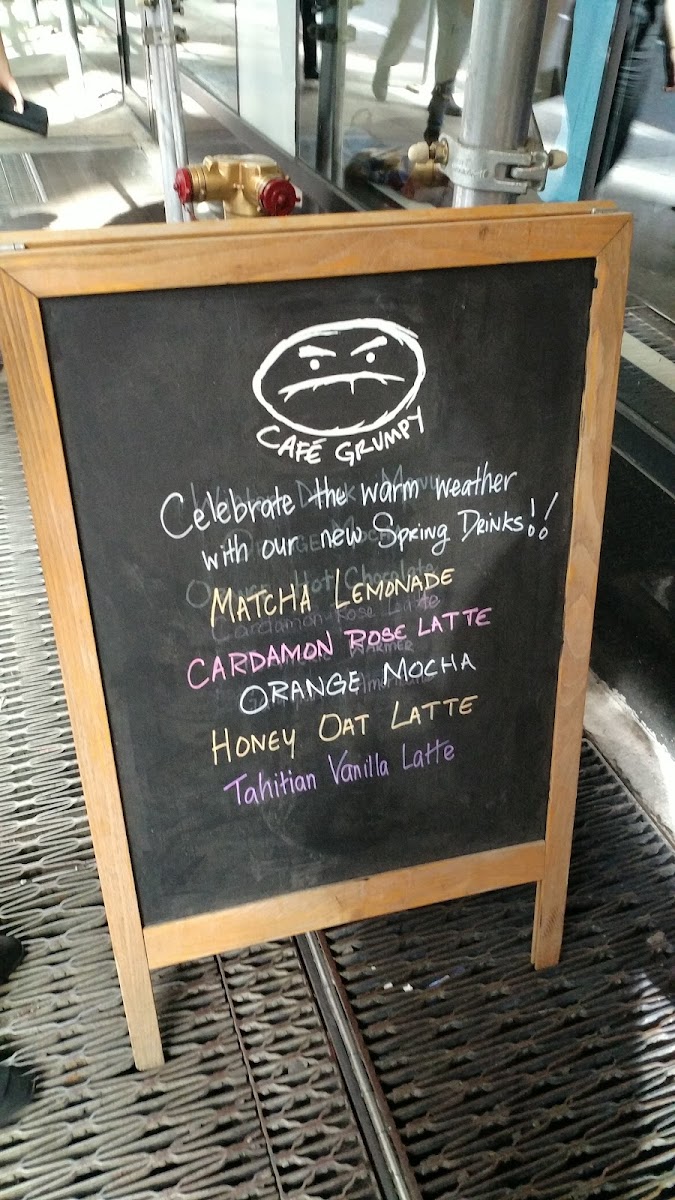 CAFÉ GRUMPY
Celebrate the warm weather
with our new Spring Drinks!!
MATCHA LEMONADE
CARDAMON ROSE LATTE
ORANGE MOCHA
HONEY OAT LATTE
Tahitian Vanilla Latte